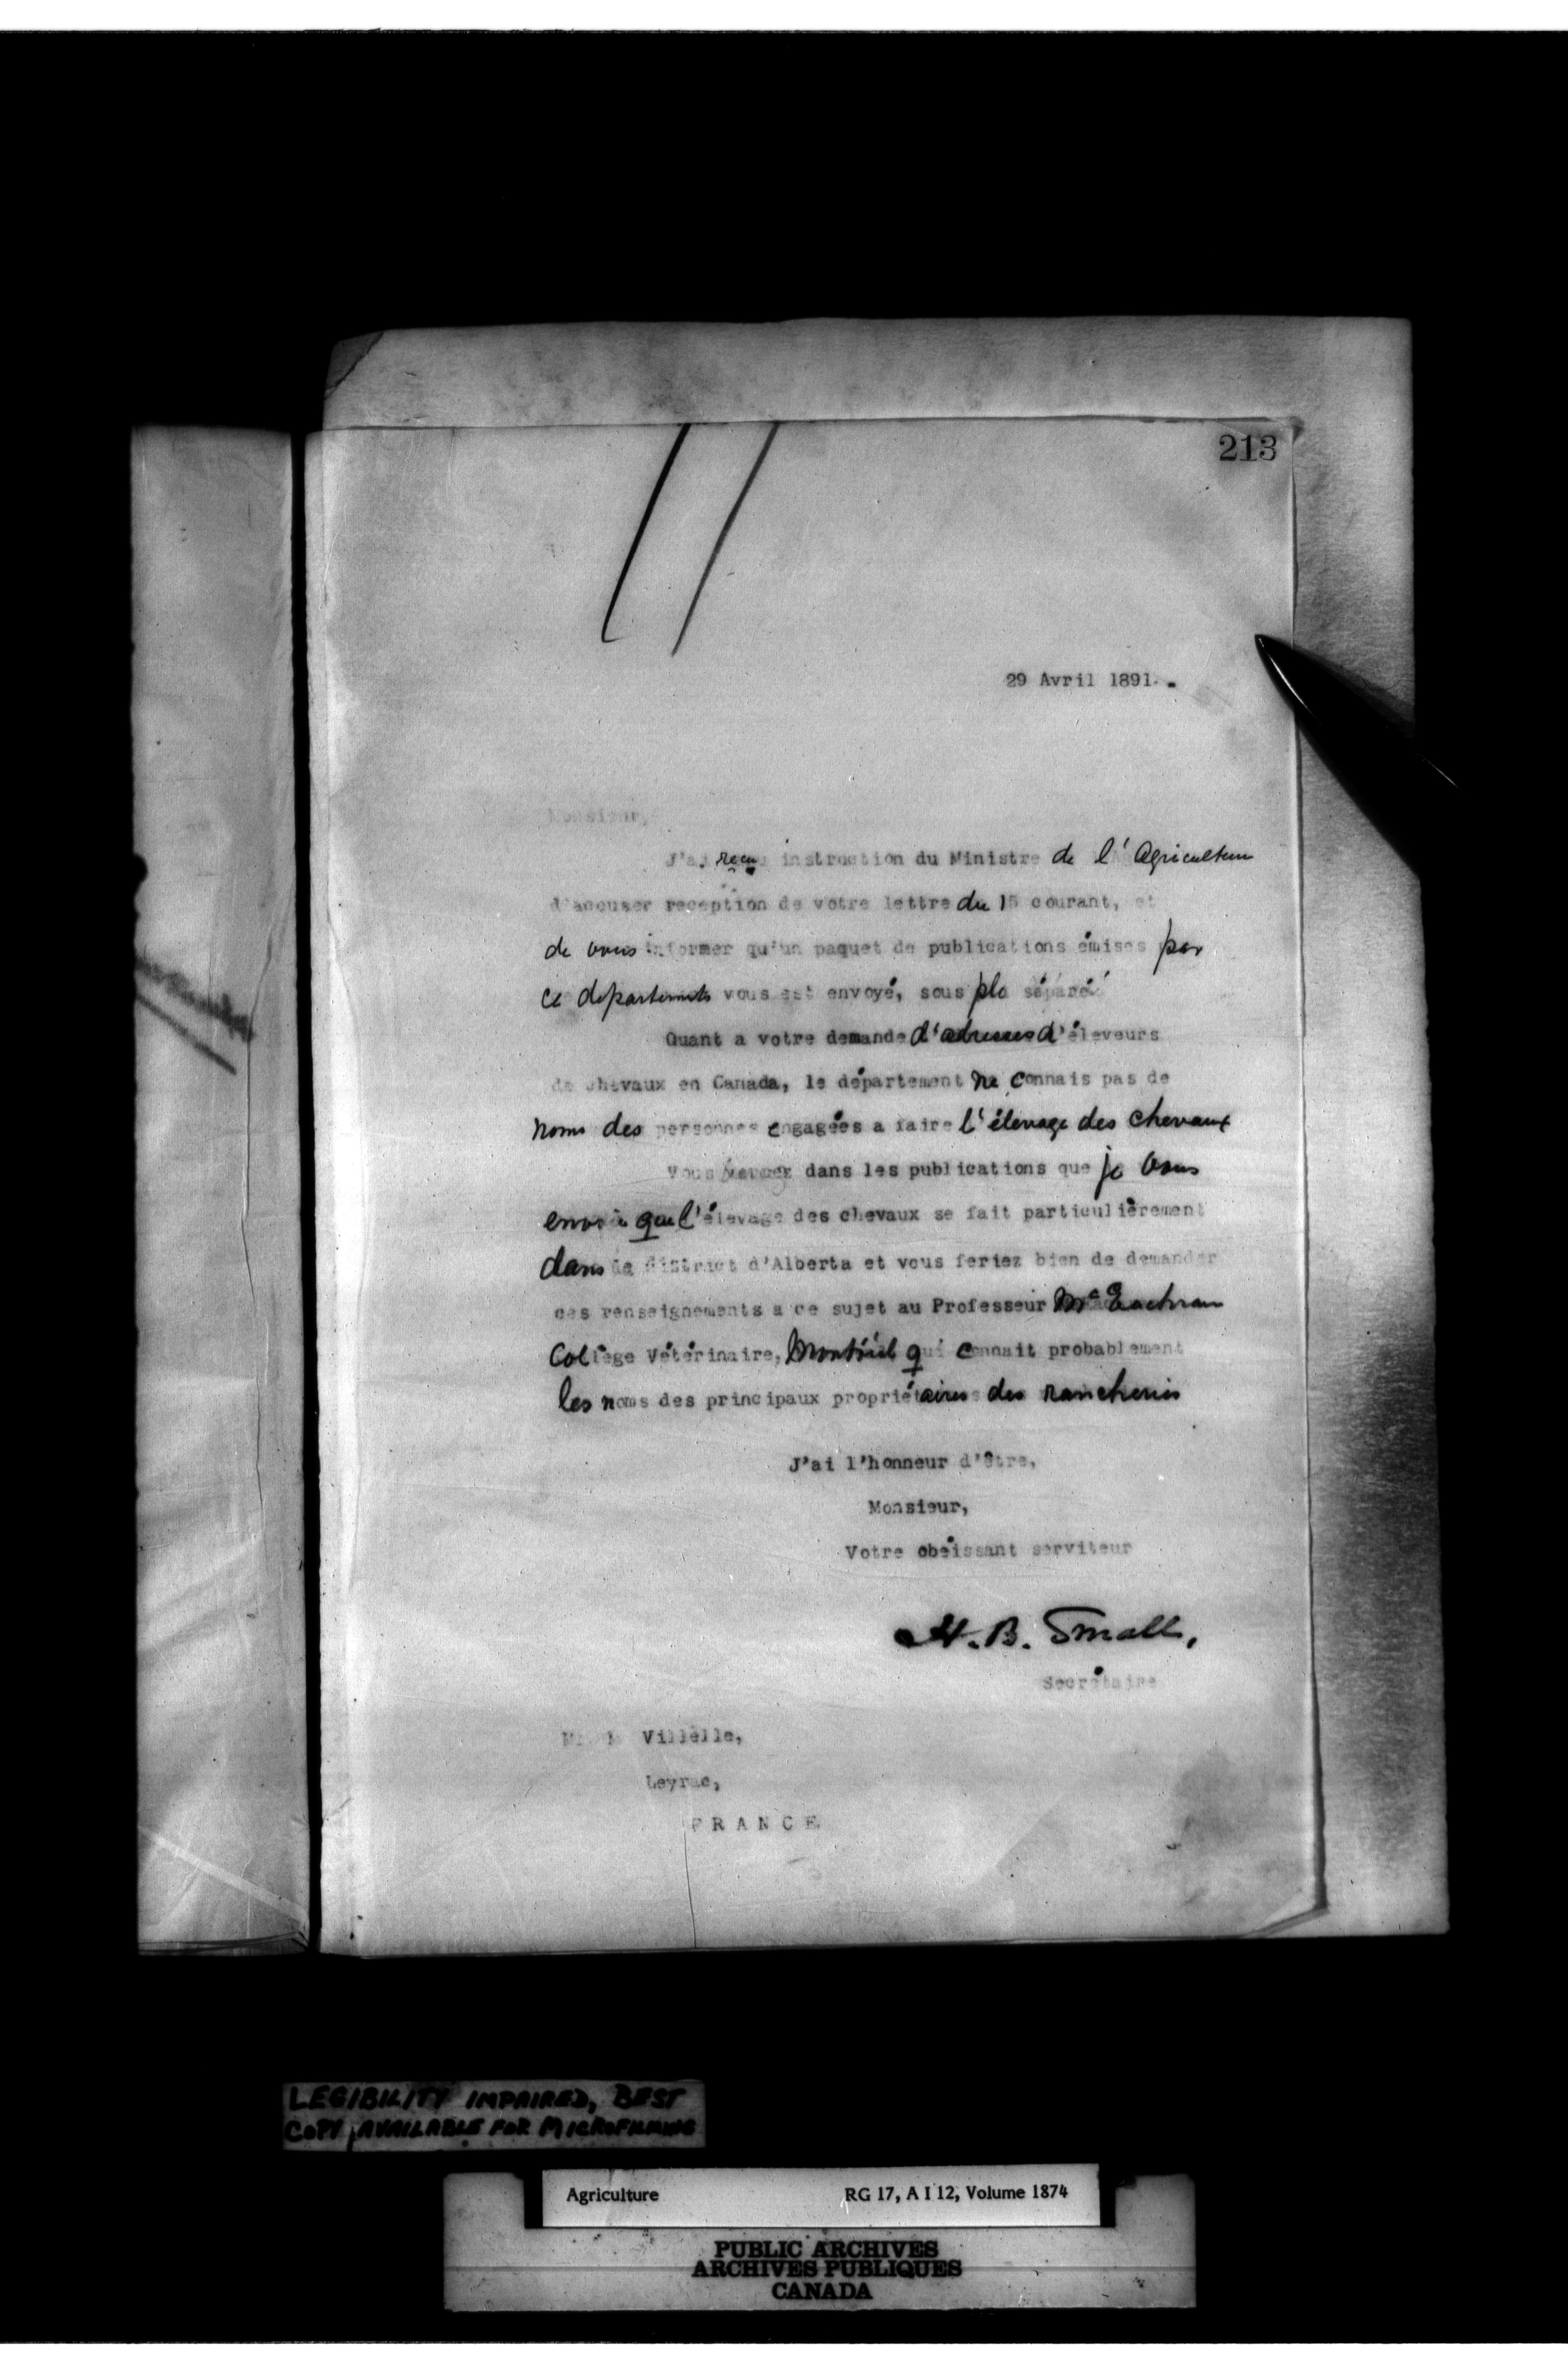 213
29 Avril 1891.
Monsieur,
J'ai reçu instruction du Ministre de l'Agriculture
d'accuser reception de votre lettre du 15 courant, et
de vous informer qu'un paquet de publications émises par
ce departement vous est envoyé, sous pli séparé
Quant a votre demande d'adresses d'éleveurs
de chevaux en Canada, le département ne connais pas de
noms des personnes engagées a faire l'élevage des chevaux
Vous dans les publications que je vous
envoie que l'élevage des chevaux se fait particulièrement
dans le district d'Alberta et vous feriez bien de demander
ces renseignements a ce sujet au Professeur McEachran
Collège Vétérinaire, Montréal qui connait probablement
les noms des principaux propriétaires des rancheries
J'ai l'honneur d'être,
Monsieur,
Votre obéissant serviteur
H. B. Small,
Secrétaire
Villèlle,
Leyrac,
FRANCE
LEGIBILITY IMPAIRED, BEST
COPY AVAILABLE FOR MICROFILMING
Agriculture RG 17, A I 12, Volume 1874
PUBLIC ARCHIVES
ARCHIVES PUBLIQUES
CANADA